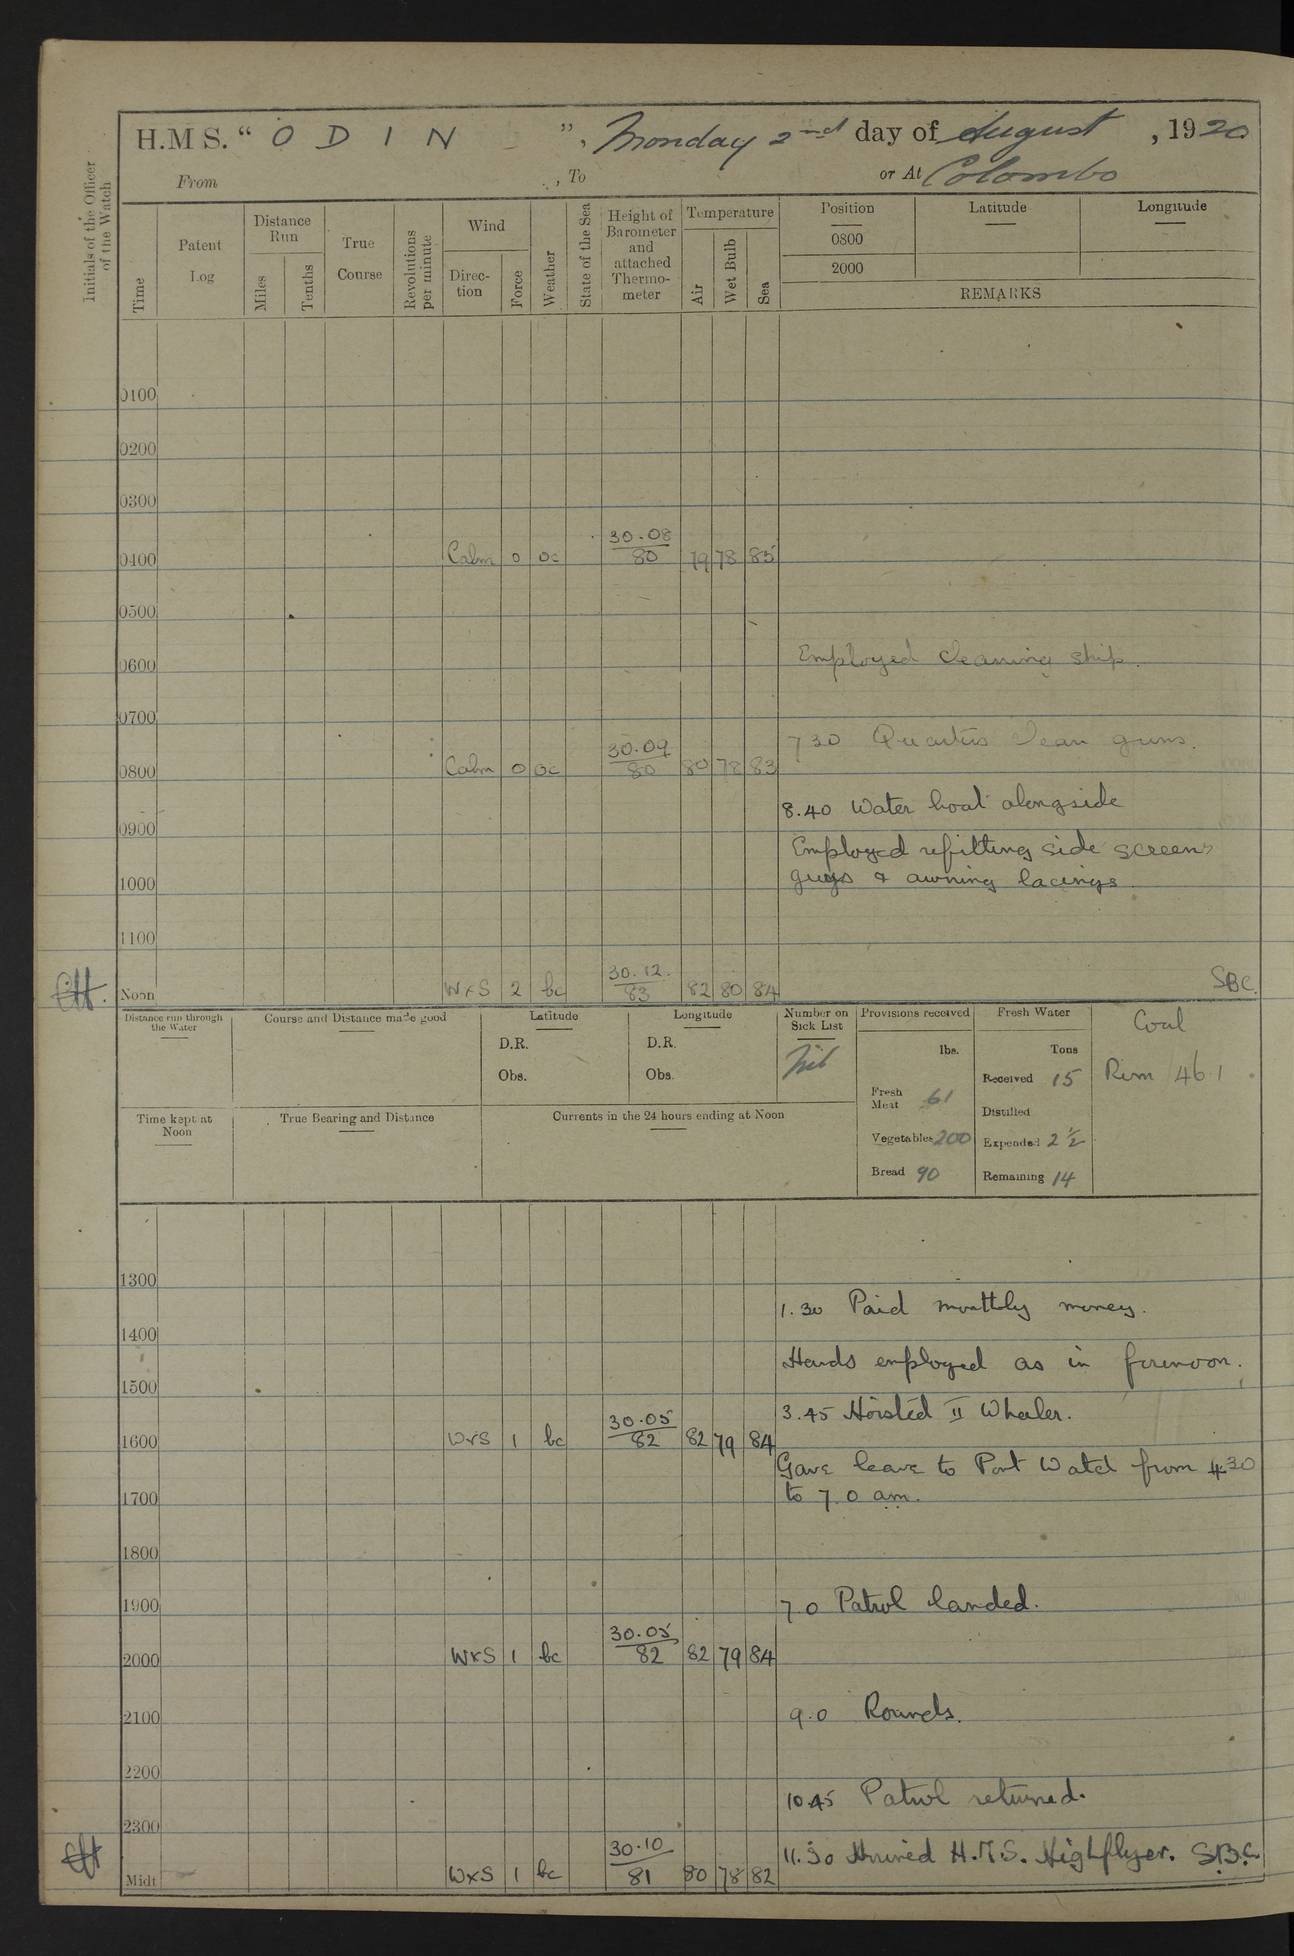 H.M.S. " O D I N ", Monday 2nd day of August, 1920
From , To or At Colombo
Initials of the Officer of the Watch
Time
Patent Log
Distance Run
Miles
Tenths
True Course
Revolutions per minute
Wind
Direc-tion
Force
Weather
State of the Sea
Height of Barometer and attached Thermo-meter
Temperature
Air
Wet Bulb
Sea
Position Latitude Longitude
0800
2000
REMARKS
0100
0200
0300
0400 Calm 0 oc 30.08 80 79 78 85
0500
0600 Employed cleaning ship.
0700
7 30 Quarters clean guns.
0800 Calm 0 oc 30.09 80 80 78 83
8.40 Water boat alongside
0900
Employed refitting side screens
1000 guys & awning lacings.
1100
Noon WxS 2 bc 30.12. 83 82 80 84 SBC.
Distance run through the Water
Course and Distance made good
Latitude
D.R.
Obs.
Longitude
D.R.
Obs.
Number on Sick List
Nil
Provisions received
lbs.
Fresh Meat 61
Vegetables 200
Bread 90
Fresh Water
Tons
Received 15
Distilled
Expended 2 1/2
Remaining 14
Coal
Rem 461
Time kept at Noon
True Bearing and Distance
Currents in the 24 hours ending at Noon
1300
1.30 Paid monthly money.
1400
Hands employed as in forenoon.
1500
3.45 Hoisted II Whaler.
1600 WxS 1 bc 30.05 82 82 79 84
Gave leave to Port Watch from 4.30
1700 to 7.0 am.
1800
1900 7.0 Patrol landed.
2000 WxS 1 bc 30.05 82 82 79 84
2100 9.0 Rounds.
2200
10.45 Patrol returned.
2300
11.30 Arrived H.M.S. Highflyer. S.B.C.
Midt WxS 1 bc 30.10 81 80 78 82